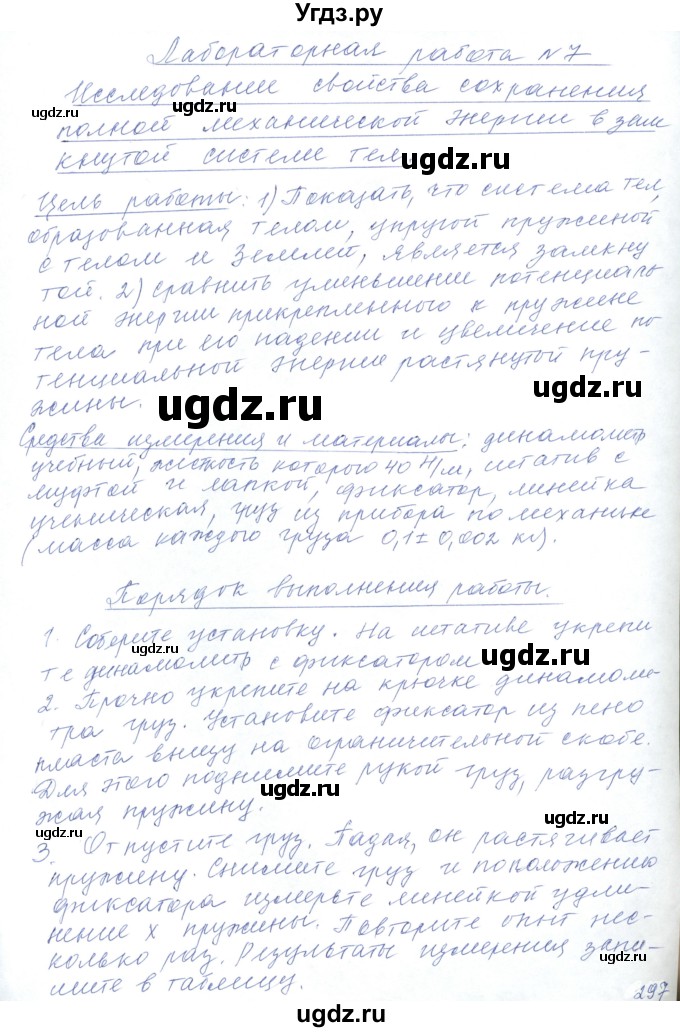 Угдз.ру
Лабораторная работа №7
Исследование свойства сохранения
полной механической энергии в зам
кнутой системе тел
Цель работы: 1) Показать, что система тел,
образованная телом, упругой пружиной
с телом и Землей, является замкну
той. 2) сравнить уменьшении потенциаль
ной энергии прикрепленного к пружине
тела при его падении и увеличение по
тенциальной энергие растянутой пру-
жины.
Средства измерения и материалы: динамометр
учебный, жисткость которого 40 Н/м, штатив с
муфтой и лапкой, фиксатор, линейка
ученическая, груз из прибора по механике
(масса каждого груза 0,1± 0,002 кг).
Порядок выполнения работы.
1. Соберите установку. На штативе укрепи
те динамометр с фиксатором
2. Прочно укрепите на крючке динамоме-
тра груз. Установите фиксатор из пено
пласта внизу на ограничительной скобе.
Для этого поднимите рукой груз, разгру-
жая пружину.
3. Отпустите груз. Падая, он растягивает
пружину. Снимите груз и по положению
фиксатора измерьте линейкой удли-
нение x пружины. Повторите опыт нес-
колько раз. Результаты измерения запи-
шите в таблицу.
297
ugdz.ru
ugdz.ru
ugdz.ru
ugdz.ru
ugdz.ru
ugdz.ru
ugdz.ru
ugdz.ru
ugdz.ru
ugdz.ru
ugdz.ru
ugdz.ru
ugdz.ru